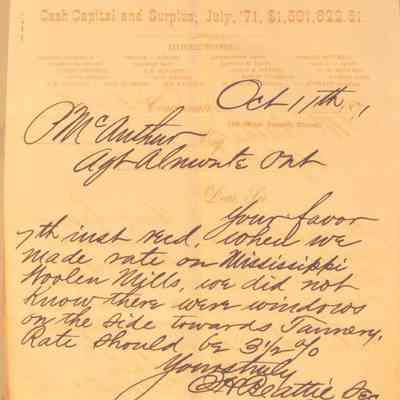 Cash Capital and Surplus, July, '71, $1,501,822.81
Oct 11th,
P McArthur
Agt Almonte Ont
Dear Sir
Your favor
7th inst recd, when we
made rate on Mississippi
Woolen Mills, we did not
know there were windows
on the side towards Tannery.
Rate should be 3½%
Yours truly
Beattie Sec